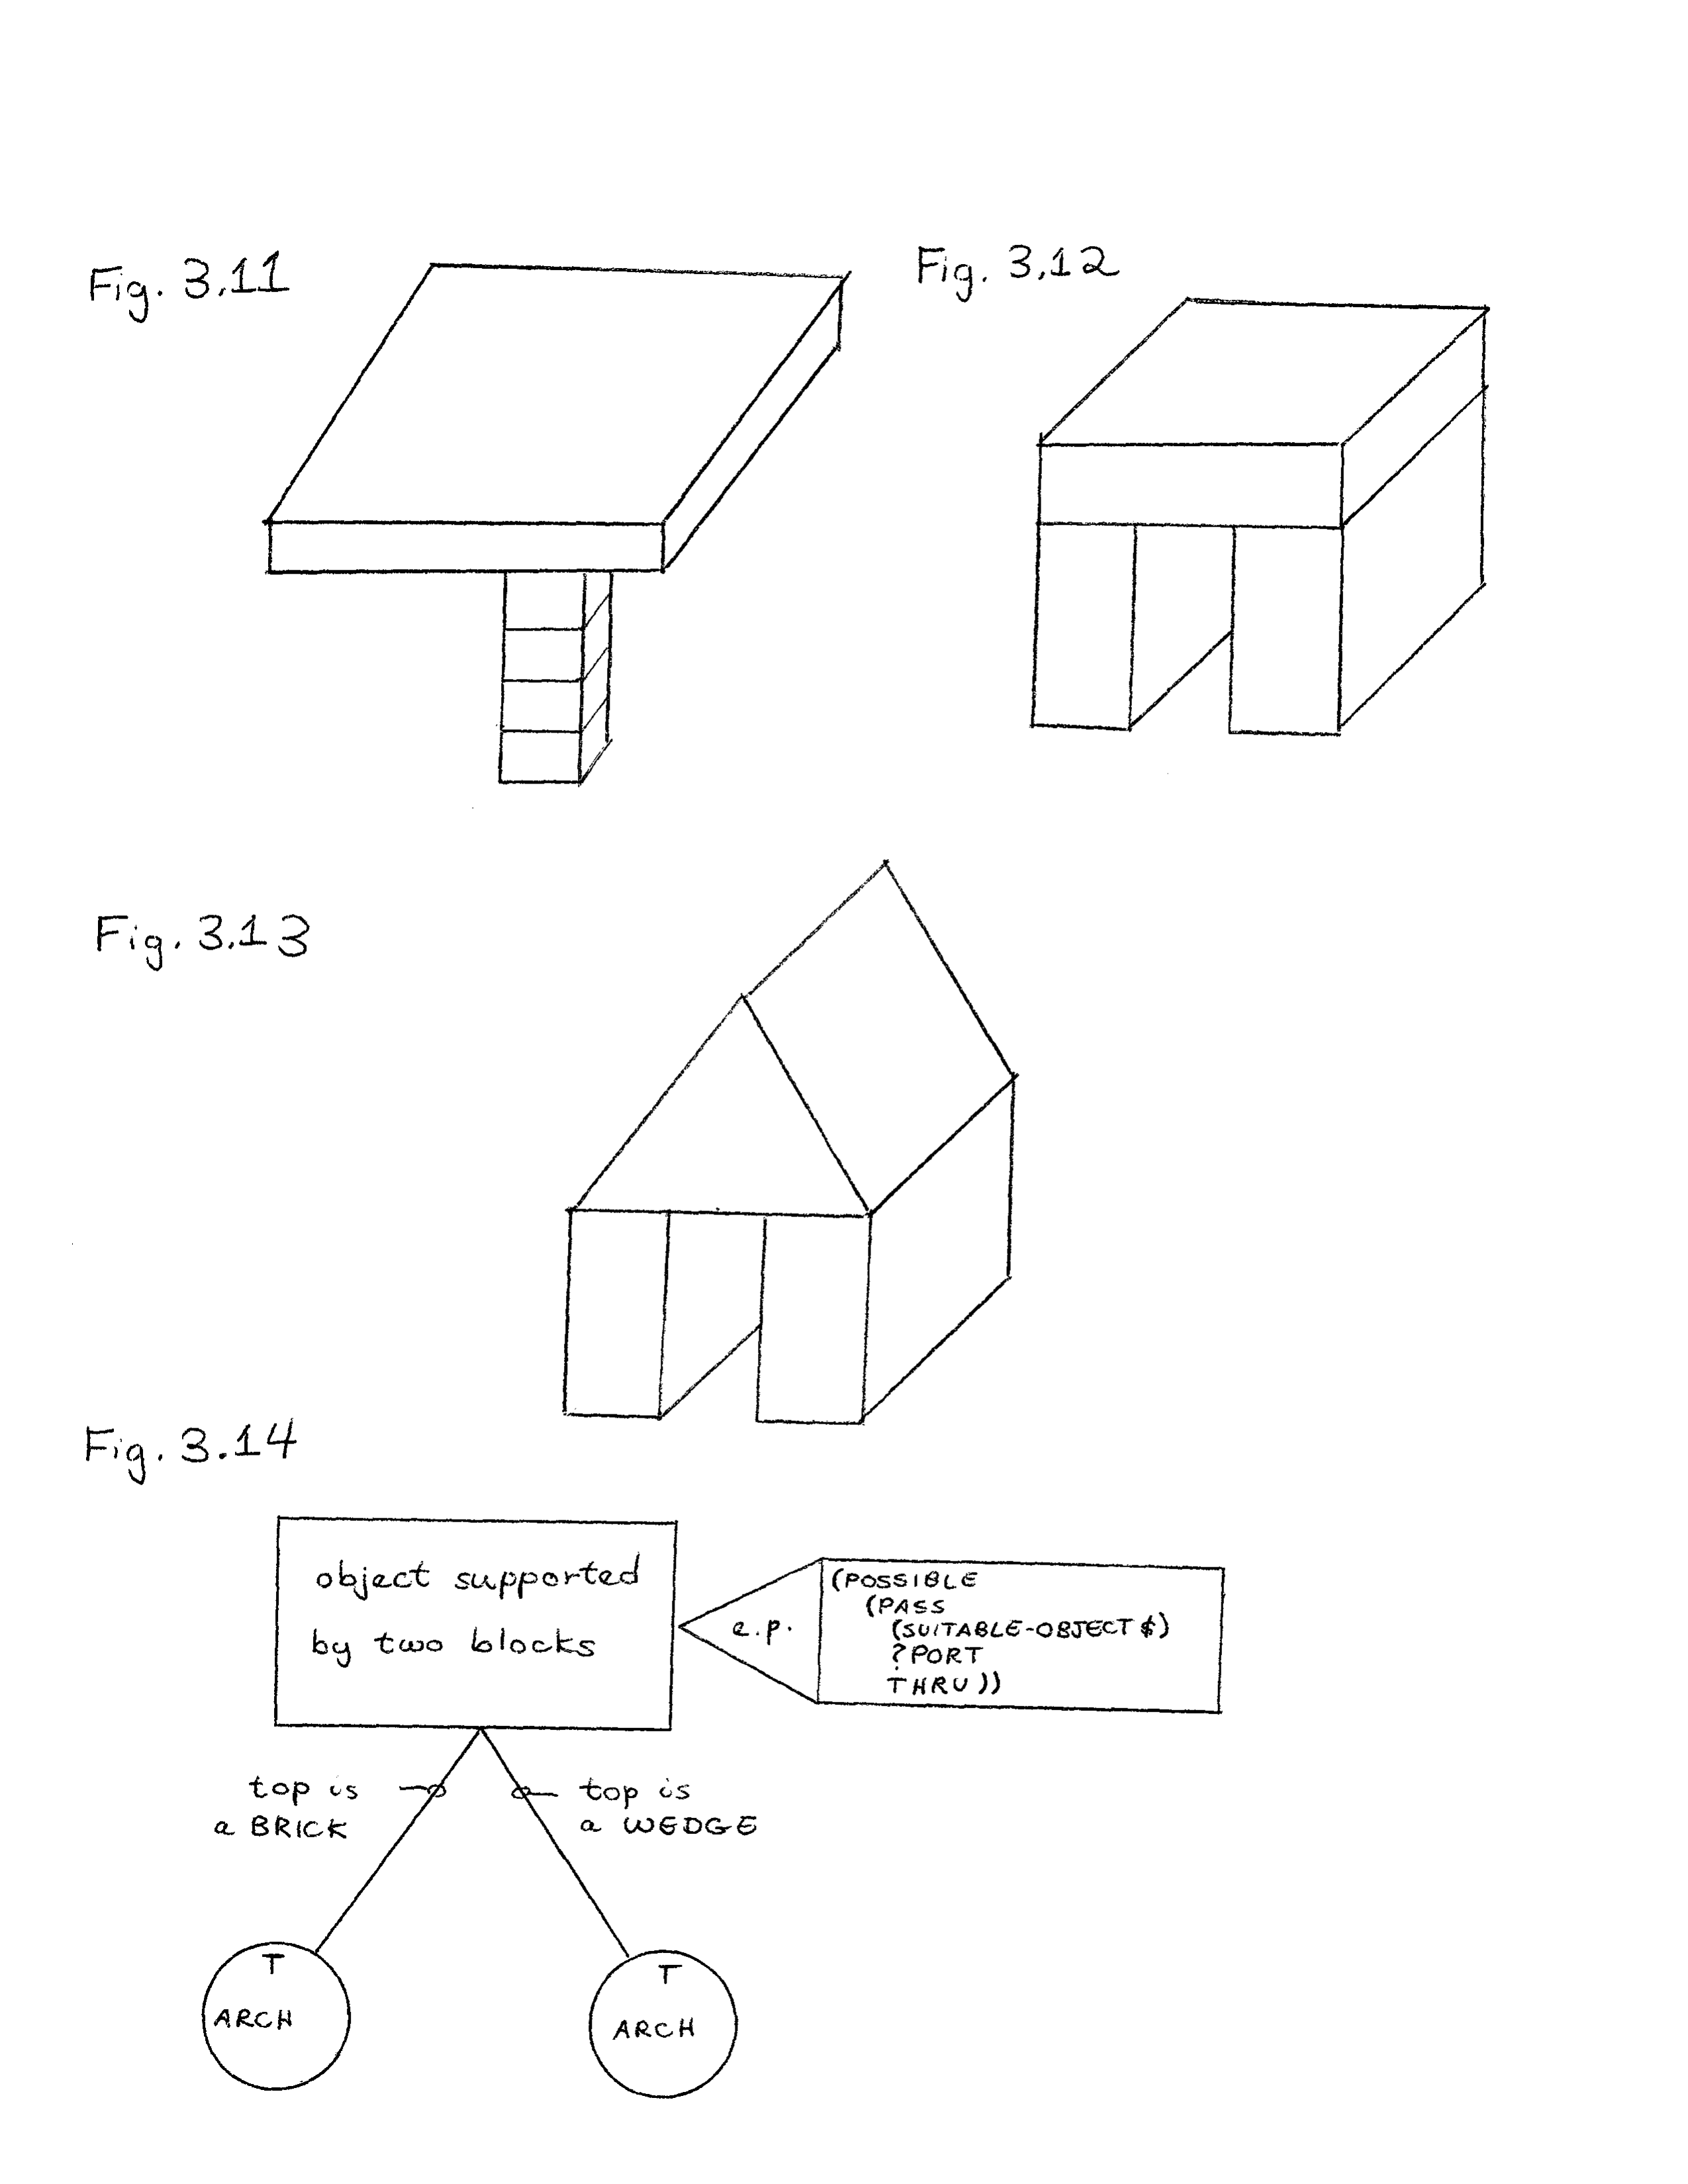 Fig. 3.11
Fig. 3.12
Fig. 3.13
Fig. 3.14
object supported
by two blocks
e.p.
(POSSIBLE
(PASS
(SUITABLE-OBJECT $)
?PORT
THRU))
top is
a BRICK
top is
a WEDGE
T
ARCH
T
ARCH